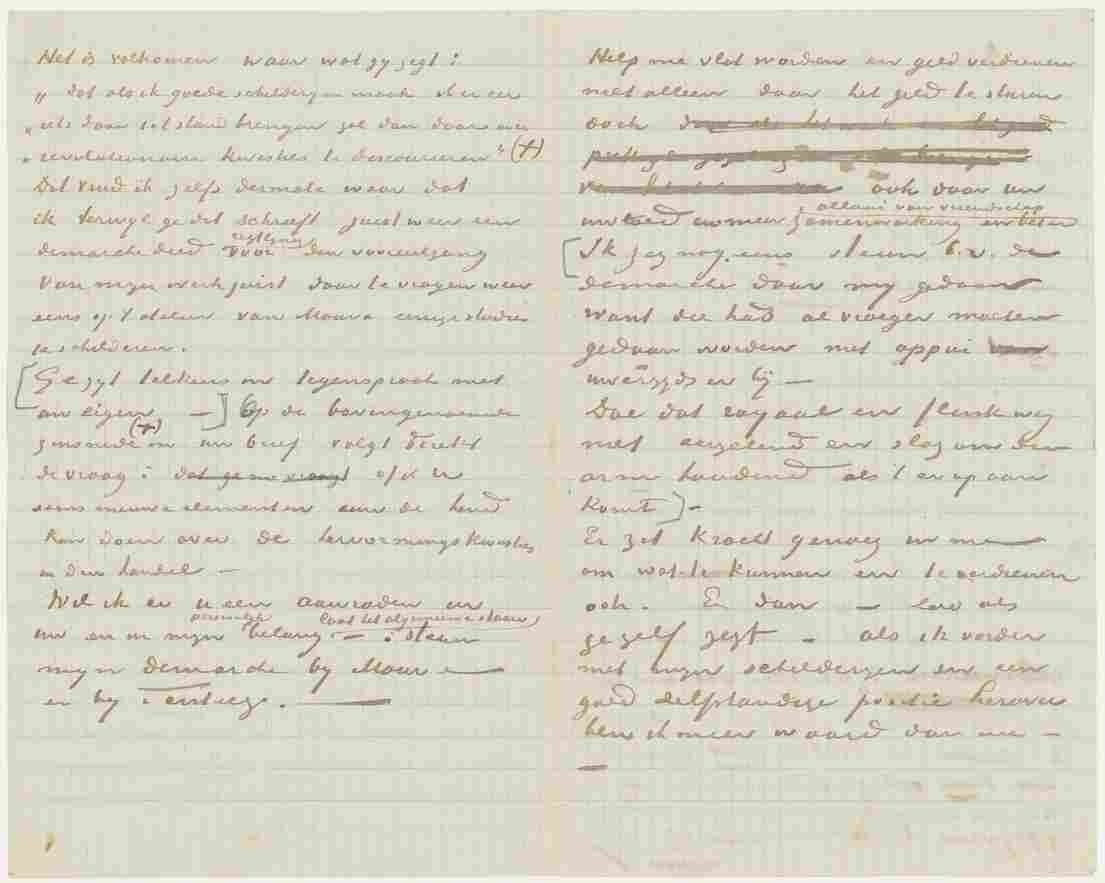 Het is volkomen waar wat gy zegt:
„dat als ik goede schilderyen maak ik er eer
„iets door tot stand brengen zal dan door over
„revolutionaire kwesties te discoureeren" (+)
Dat vind ik zelf dermate waar dat
ik terwyl ge dit schreeft juist weer een
regtstreeks
demarche deed voor den vooruitgang
van myn werk juist door te vragen weer
eens op 't atelier van Mauve eenige studies
te schilderen.
[Ge zyt telkens in tegenspraak met
uw eigen —] Op de bovengenoemde
zinsnede (+) in uw brief volgt direkt
de vraag: dat ge me vraagt of ik u
eens nieuwe elementen aan de hand
kan doen over de hervormingskwesties
in den handel —
Wil ik er u een aanraden in
persoonlyk laat het algemeene staan
uw en in myn belang — : steun
myn demarche by Mauve
en by Tersteeg. —
Help me vlot worden en geld verdienen
niet alleen door het geld te sturen
ook
ook door uw
alliani van vriendschap
invloed en meer samenwerking
[Ik zeg nog eens steun b.v. de
demarche door my gedaan
want die had al vroeger moeten
gedaan worden met appui
uwerzyds en by —
Doe dat royaal en flink weg
niet aarzelend en slag om den
arm houdend als 't er op aan
komt] —
Er zit kracht genoeg in me
om wat te kunnen en te verdienen
ook. En dan — zoo als
ge zelf zegt — als ik vorder
met myn schilderyen en een
goed zelfstandige positie herover
ben ik meer waard dan nu —